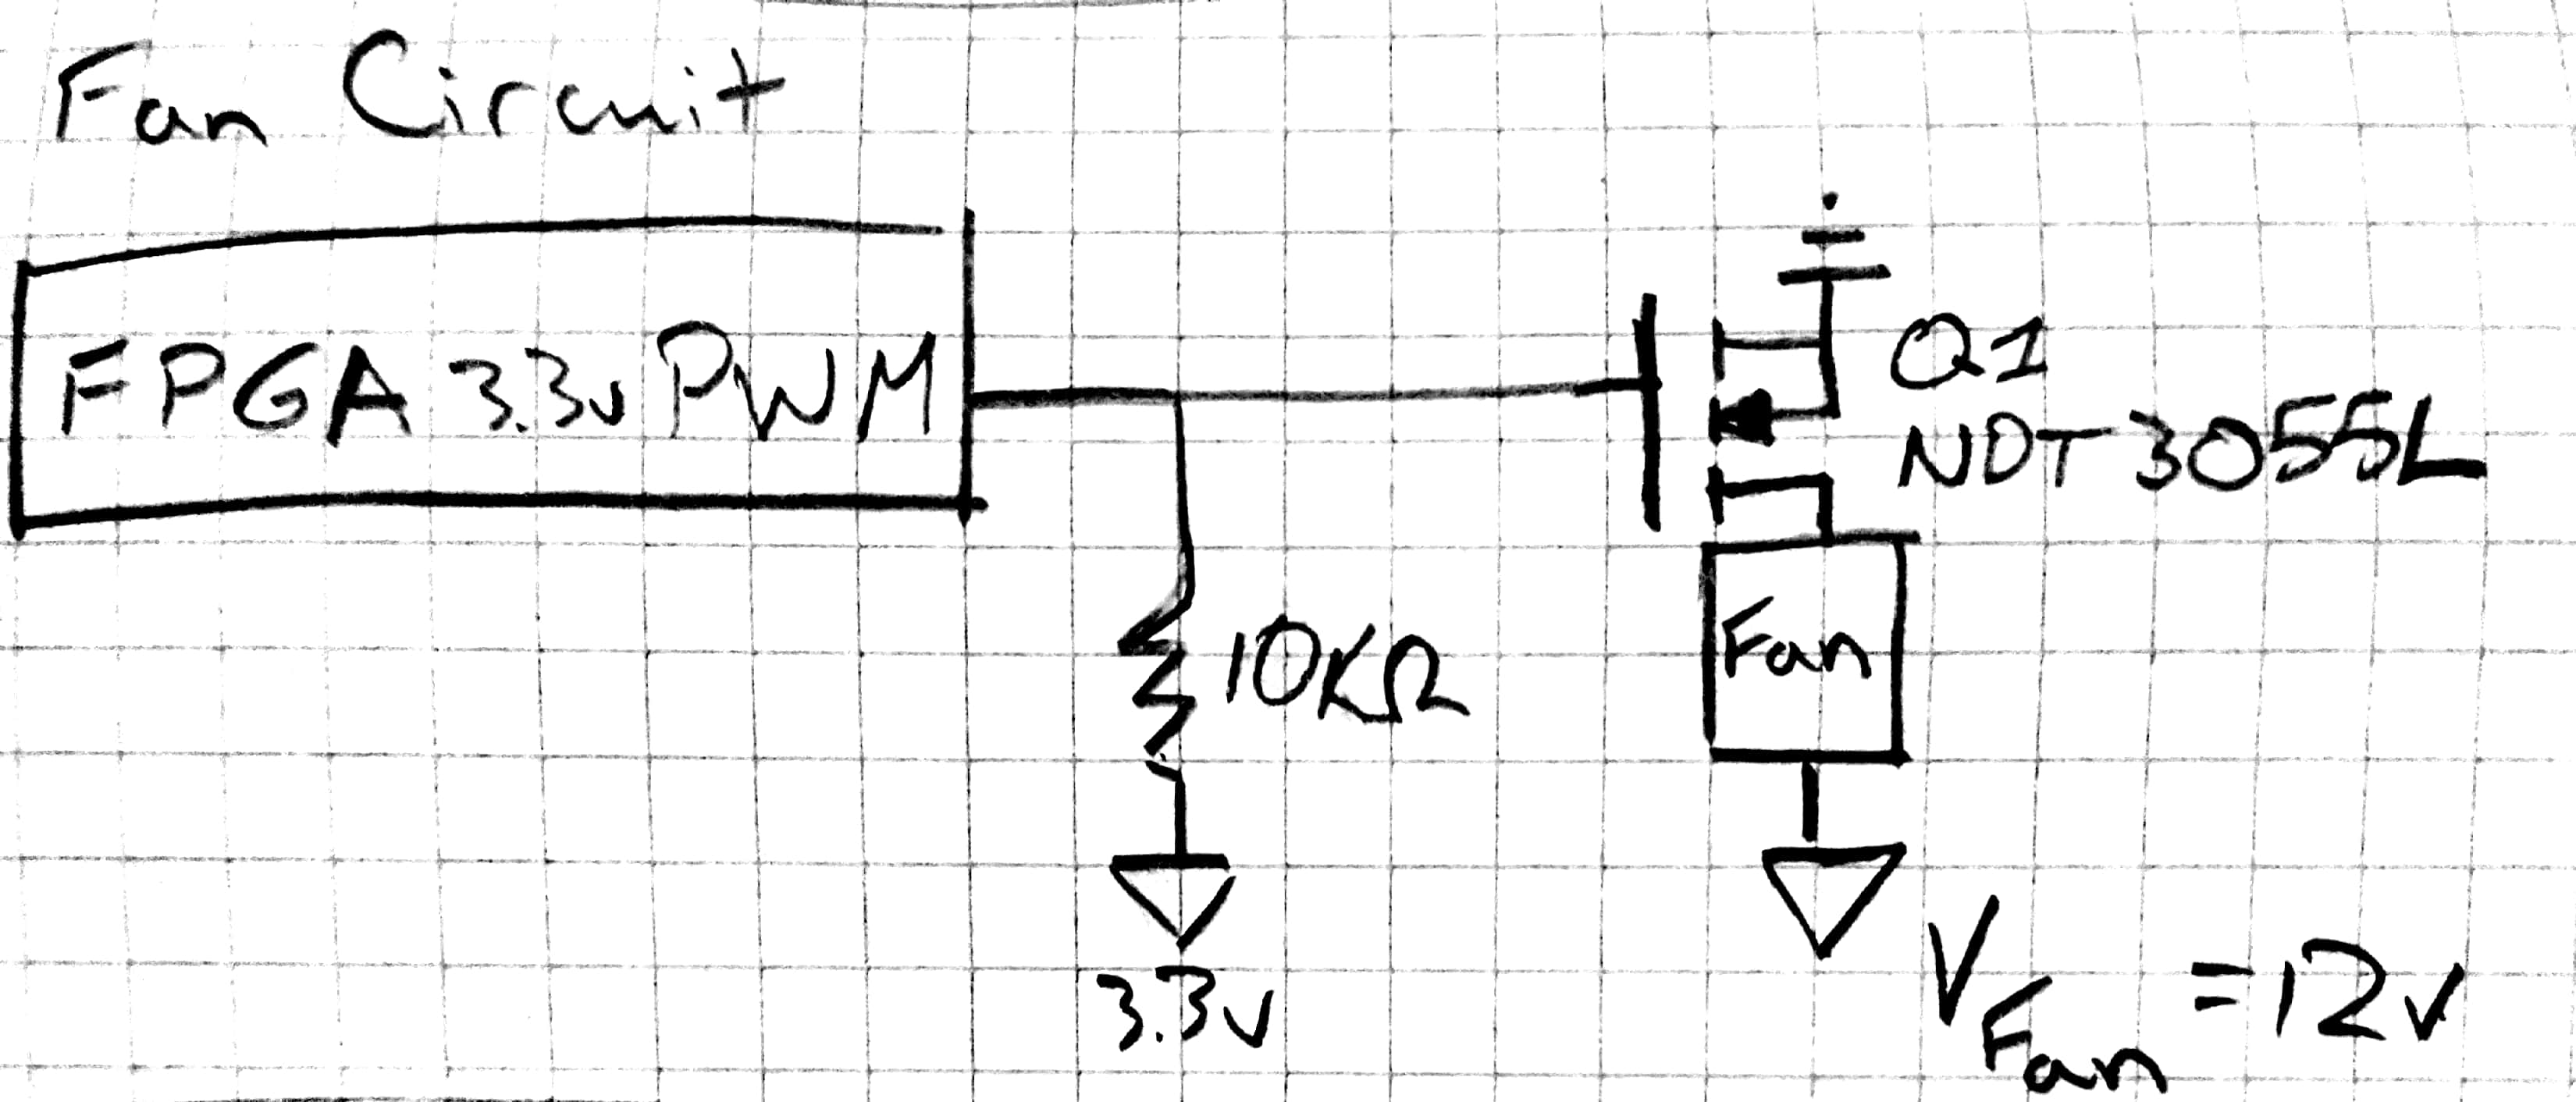 Fan Circuit
FPGA 3.3v PWM
Q1
NDT3055L
10KΩ
Fan
3.3v
VFan = 12v